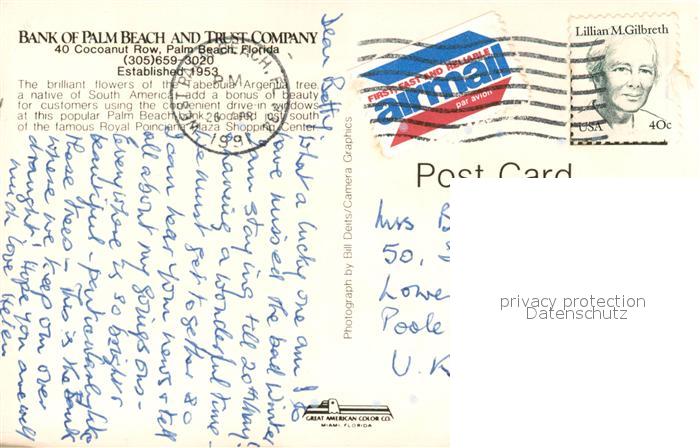 BANK OF PALM BEACH AND TRUST COMPANY
40 Cocoanut Row, Palm Beach, Florida
(305)659-3020
Established 1953
The brilliant flowers of the Tabebuia Argentia tree,
a native of South America, add a bonus of beauty
for customers using the convenient drive-in windows
at this popular Palm Beach bank, located just south
of the famous Royal Poinciana Plaza Shopping Center.
WEST PALM BEACH, FL
PM
26 APR
1991
FIRST FAST AND RELIABLE
air mail
par avion
Lillian M. Gilbreth
USA 40c
Post Card
Dear Betty
What a lucky one am I to
have missed the bad Winter
Am staying till 20th May!
& having a wonderful time -
We must get together so
can hear your news & tell
all about my goings ons -
Everywhere is so bright &
beautiful - particularly like
these trees - This is the bank
where we keep our over
draught! Hope you are well
much love Helen
Photograph by Bill Deits/Camera Graphics
Mrs B
50,
Lowe
Poole
U.K
privacy protection
Datenschutz
GREAT AMERICAN COLOR CO.
MIAMI, FLORIDA